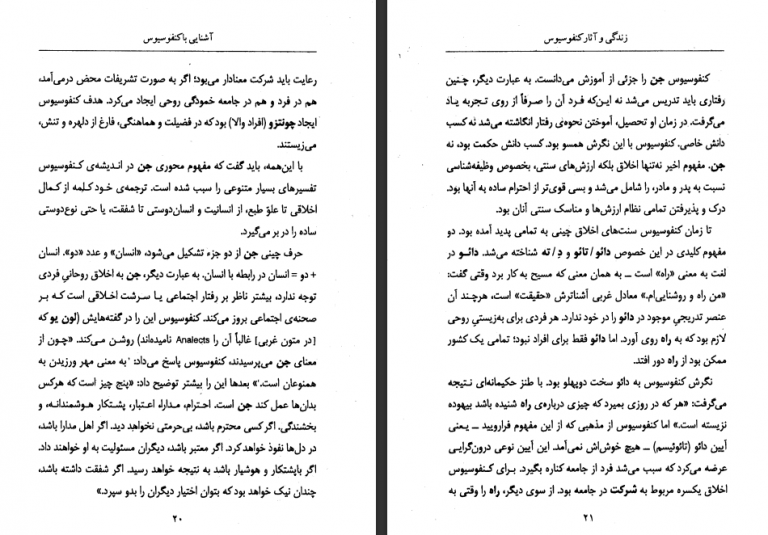 آشنایی با کنفوسیوس
رعایت باید شرکت معنادار می‌بود؛ اگر به صورت تشریفات محض درمی‌آمد،
هم در فرد و هم در جامعه خمودگی روحی ایجاد می‌کرد. هدف کنفوسیوس
ایجاد چونتزو (افراد والا) بود که در فضیلت و هماهنگی، فارغ از دلهره و تنش،
می‌زیستند.
با این‌همه، باید گفت که مفهوم محوری جن در اندیشه‌ی کنفوسیوس
تفسیرهای بسیار متنوعی را سبب شده است. ترجمه‌ی خود کلمه از کمال
اخلاقی تا علوّ طبع، از انسانیت و انسان‌دوستی تا شفقت، یا حتی نوع‌دوستی
ساده را در بر می‌گیرد.
حرف چینی جن از دو جزء تشکیل می‌شود، «انسان» و عدد «دو». انسان
+ دو = انسان در رابطه با انسان. به عبارت دیگر، جن به اخلاق روحانیِ فردی
توجه ندارد، بیشتر ناظر بر رفتار اجتماعی یا سرشت اخلاقی است که بر
صحنه‌ی اجتماعی بروز می‌کند. کنفوسیوس این را در گفته‌هایش (لون یو که
[در متون غربی] غالباً آن را Analects نامیده‌اند) روشن می‌کند. «چون از
معنای جن می‌پرسیدند، کنفوسیوس پاسخ می‌داد: ‹به معنی مهر ورزیدن به
همنوعان است.›» بعدها این را بیشتر توضیح داد: «پنج چیز است که هرکس
بدان‌ها عمل کند جن است. احترام، مدارا، اعتبار، پشتکار هوشمندانه، و
بخشندگی. اگر کسی محترم باشد، بی‌حرمتی نخواهد دید. اگر اهل مدارا باشد،
در دل‌ها نفوذ خواهد کرد. اگر معتبر باشد، دیگران مسئولیت به او خواهند داد.
اگر باپشتکار و هوشیار باشد به نتیجه خواهد رسید. اگر شفقت داشته باشد،
چندان نیک خواهد بود که بتوان اختیار دیگران را بدو سپرد.»
۲۰
زندگی و آثار کنفوسیوس
کنفوسیوس جن را جزئی از آموزش می‌دانست. به عبارت دیگر، چنین
رفتاری باید تدریس می‌شد نه این‌که فرد آن را صرفاً از روی تجربه یاد
می‌گرفت. در زمان او تحصیل، آموختن نحوه‌ی رفتار انگاشته می‌شد نه کسب
دانش خاصی. کنفوسیوس با این نگرش همسو بود. کسب دانش حکمت بود، نه
جن. مفهوم اخیر نه‌تنها اخلاق بلکه ارزش‌های سنتی، بخصوص وظیفه‌شناسی
نسبت به پدر و مادر، را شامل می‌شد و بسی قوی‌تر از احترام ساده به آنها بود.
درک و پذیرفتن تمامی نظام ارزش‌ها و مناسک سنتی آنان بود.
تا زمان کنفوسیوس سنت‌های اخلاق چینی به تمامی پدید آمده بود. دو
مفهوم کلیدی در این خصوص دائو / تائو و دِ / ته شناخته می‌شد. دائو در
لغت به معنی «راه» است ــ به همان معنی که مسیح به کار برد وقتی گفت:
«من راه و روشنایی‌ام.» معادل غربی آشناترش «حقیقت» است، هرچند آن
عنصر تدریجیِ موجود در دائو را در خود ندارد. هر فردی برای به‌زیستیِ روحی
لازم بود که به راه روی آورد. اما دائو فقط برای افراد نبود؛ تمامی یک کشور
ممکن بود از راه دور افتد.
نگرش کنفوسیوس به دائو سخت دوپهلو بود. با طنز حکیمانه‌ای نتیجه
می‌گرفت: «هر که در روزی بمیرد که چیزی درباره‌ی راه شنیده باشد بیهوده
نزیسته است.» اما کنفوسیوس از مذهبی که از این مفهوم فرارویید ــ یعنی
آیین دائو (تائوئیسم) ــ هیچ خوش‌اش نمی‌آمد. این آیین نوعی درون‌گرایی
عرضه می‌کرد که سبب می‌شد فرد از جامعه کناره بگیرد. برای کنفوسیوس
اخلاق یکسره مربوط به شرکت در جامعه بود. از سوی دیگر، راه را وقتی به
۲۱